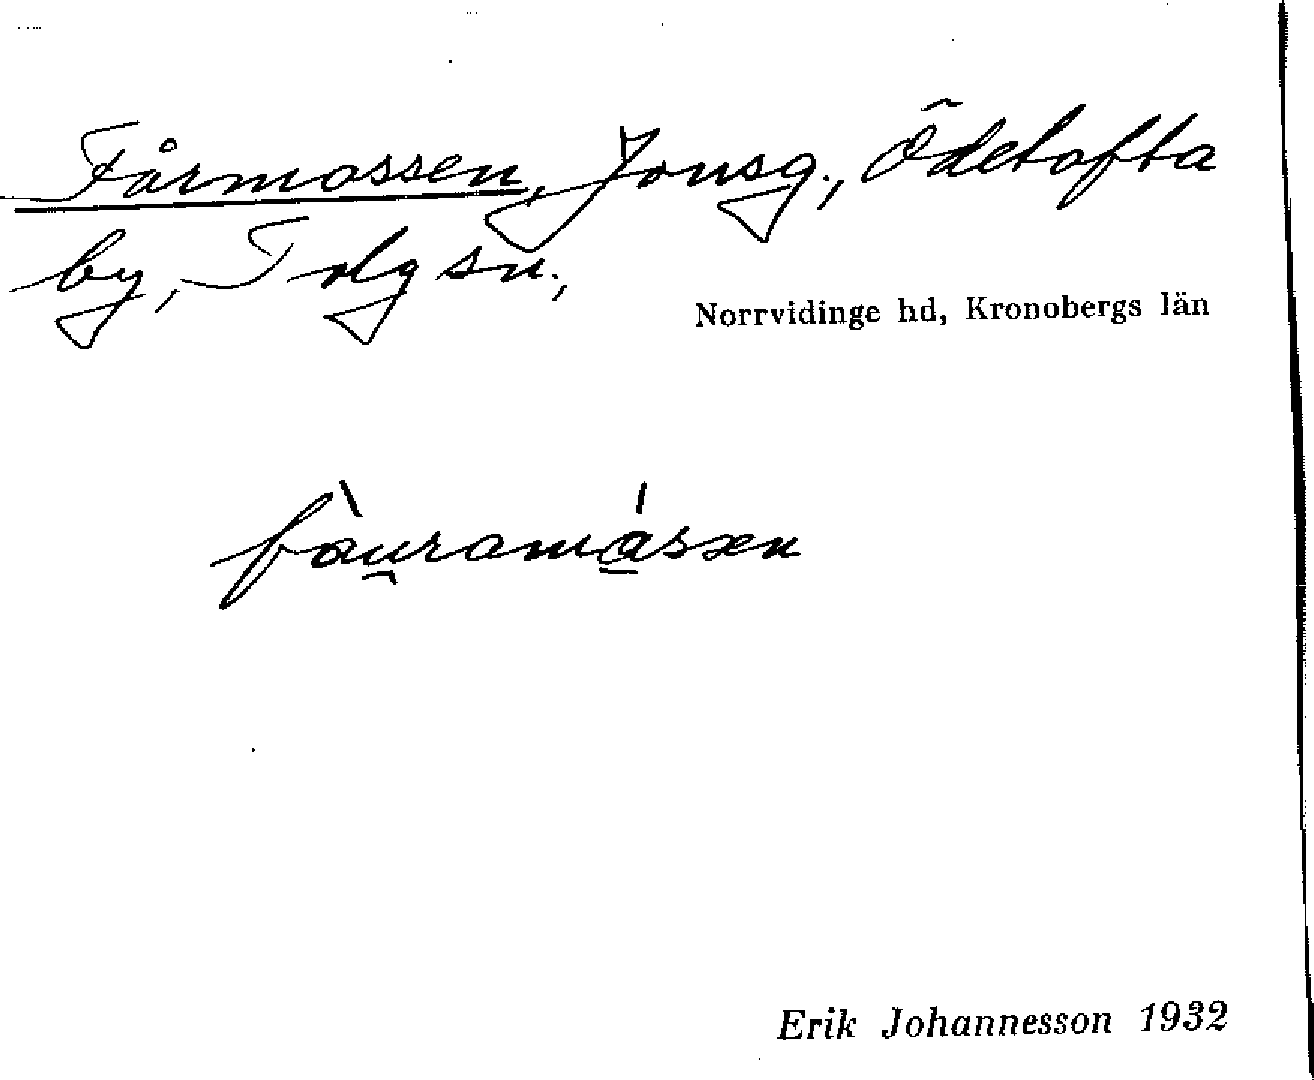 Fårmossen, Jonsg., Ödetofta
by, Tolg sn.,
Norrvidinge hd, Kronobergs län
fàu̯ramásæn
Erik Johannesson 1932